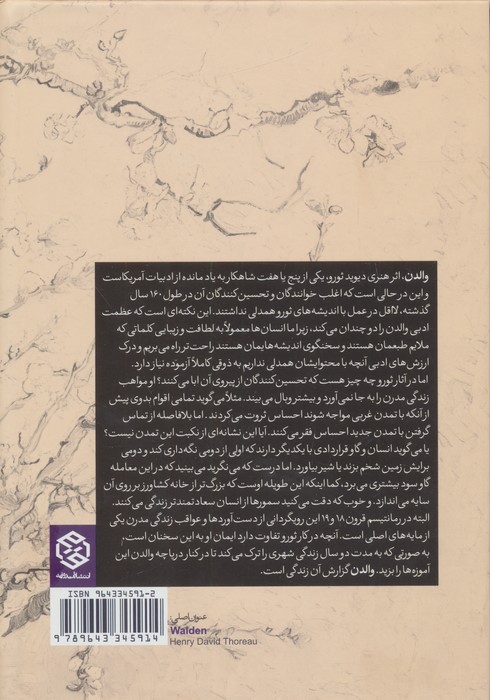 والدن، اثر هنری دیوید ثورو، یکی از پنج یا هفت شاهکار به یاد مانده از ادبیات آمریکاست
و این در حالی است که اغلب خوانندگان و تحسین‌کنندگان آن در طول ۱۶۰ سال
گذشته، لااقل در عمل با اندیشه‌های ثورو همدلی نداشتند. این نکته‌ای است که عظمت
ادبی والدن را دو چندان می‌کند، زیرا ما انسان‌ها معمولاً به لطافت و زیبایی کلماتی که
ملایم طبعمان هستند و سخنگوی اندیشه‌هایمان هستند راحت‌تر راه می‌بریم و درک
ارزش‌های ادبی آنچه با محتوایشان همدلی نداریم به ذوقی کاملاً آزموده نیاز دارد.
اما در آثار ثورو چه چیز هست که تحسین‌کنندگان از پیروی آن ابا می‌کنند؟ او مواهب
زندگی مدرن را به جا نمی‌آورد و بیشتر وبال می‌بیند. مثلاً می‌گوید تمامی اقوام بدوی پیش
از آنکه با تمدن غربی مواجه شوند احساس ثروت می‌کردند. اما بلافاصله از تماس
گرفتن با تمدن جدید احساس فقر می‌کنند. آیا این نشانه‌ای از نکبت این تمدن نیست؟
یا می‌گوید انسان و گاو قراردادی با یکدیگر دارند که اولی از دومی نگه‌داری کند و دومی
برایش زمین شخم بزند یا شیر بیاورد. اما درست که می‌نگرید می‌بینید که در این معامله
گاو سود بیشتری می‌برد، کما اینکه این طویله اوست که بزرگ‌تر از خانه کشاورز بر روی آن
سایه می‌اندازد. و خوب که دقت می‌کنید سمورها از انسان سعادتمندتر زندگی می‌کنند.
البته در رمانتیسم قرون ۱۸ و ۱۹ این رویگردانی از دست‌آوردها و عواقب زندگی مدرن یکی
از مایه‌های اصلی است. آنچه در کار ثورو تفاوت دارد ایمان او به این سخنان است، به
به صورتی که به مدت دو سال زندگی شهری را ترک می‌کند تا در کنار دریاچه والدن این
آموزه‌ها را بزید. والدن گزارش آن زندگی است.
ISBN 964334591-2
9 789643 345914
عنوان اصلی:
Walden
Henry David Thoreau